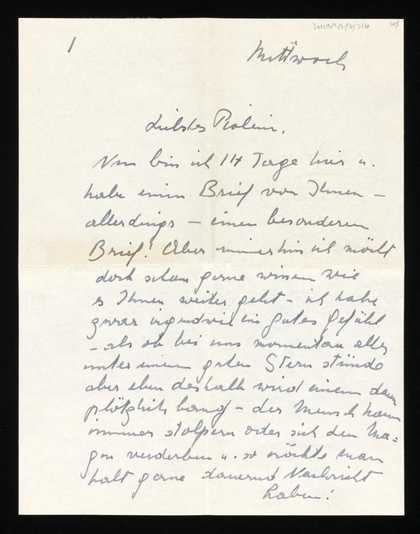 1
Mittwoch
Liebstes
Nun bin ich 14 Tage hier u.
habe einen Brief von Ihnen –
allerdings – einen besonderen
Brief! Aber immerhin ich möcht
doch schon gerne wissen wie
es Ihnen weiter geht – ich habe
zwar irgendwie ein gutes Gefühl
– als ob bei uns momentan alles
unter einem guten Stern stünde
aber eben deshalb wird einem dann
plötzlich bang – der Mensch kann
immer stolpern oder sich den Ma-
gen verderben u. so möchte man
halt gerne dauernd Nachricht
haben!